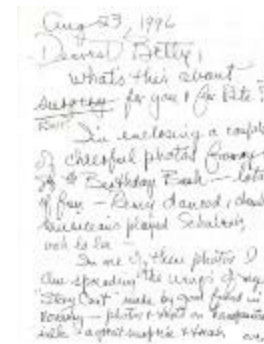 Aug 23, 1996
Dearest Betty,
What's this about
surgery for you & for Pete?
I'm enclosing a couple
of cheerful photos from my
Birthday Bash — lots
of fun — Remy danced,
musicians played Schubert,
ooh la la —
In one of these photos I
am spreading the wings of my
"Story Coat" made by good friend in
— photos & text on
silk — a great surprise &
over